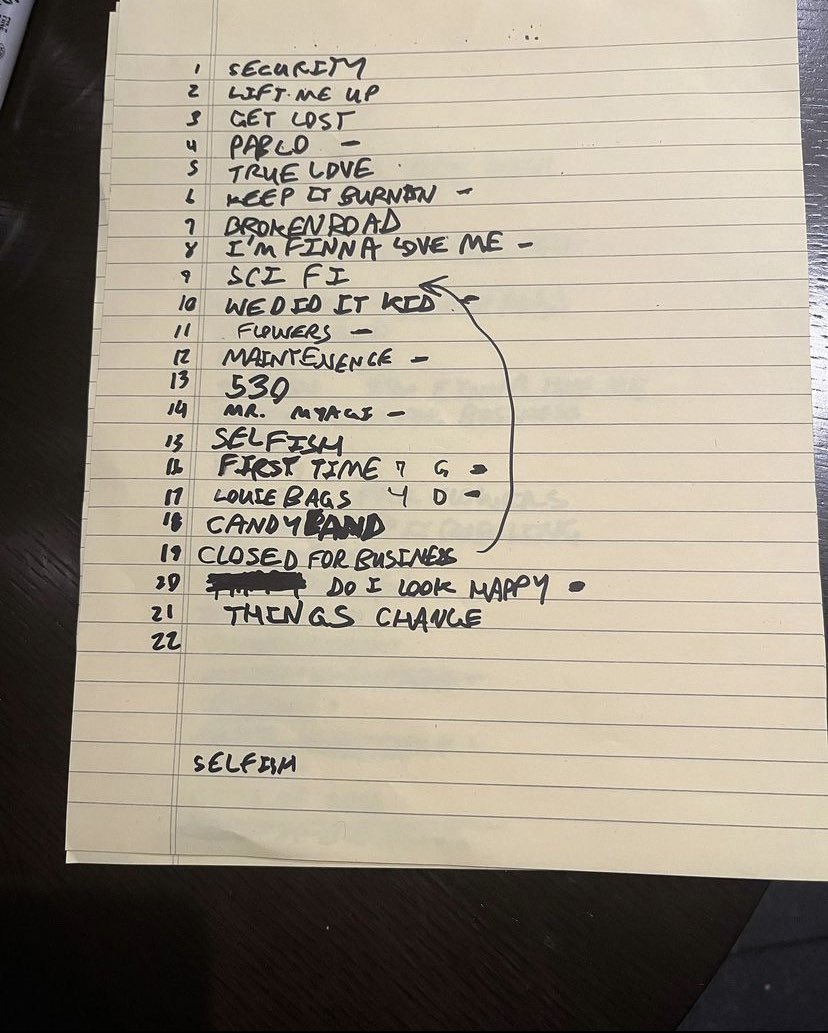 1 SECURITY
2 LIFT ME UP
3 GET LOST
4 PABLO -
5 TRUE LOVE
6 KEEP IT BURNIN -
7 BROKEN ROAD
8 I'M FINNA LOVE ME -
9 SCI FI
10 WE DID IT KID -
11 FLOWERS -
12 MAINTENENCE -
13 530
14 MR. MYAGI -
15 SELFISH
16 FIRST TIME 7 G -
17 LOUIE BAGS Y D -
18 CANDYLAND
19 CLOSED FOR BUSINESS
20 DO I LOOK HAPPY •
21 THINGS CHANGE
22
SELFISH